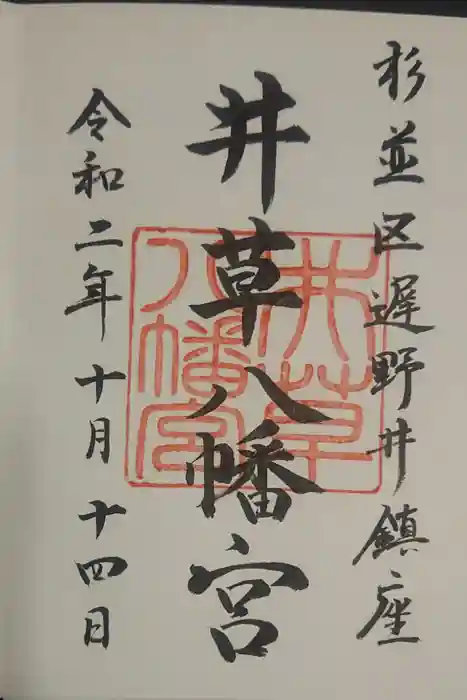 杉並区遅野井鎮座
井草八幡宮
井草八幡宮
令和二年十月十四日